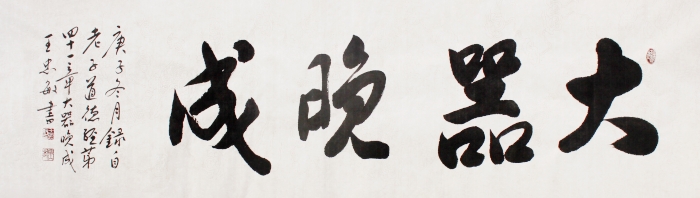 大器晚成
庚子冬月錄自
老子道德經第
四十一章大器晚成
王忠敏書